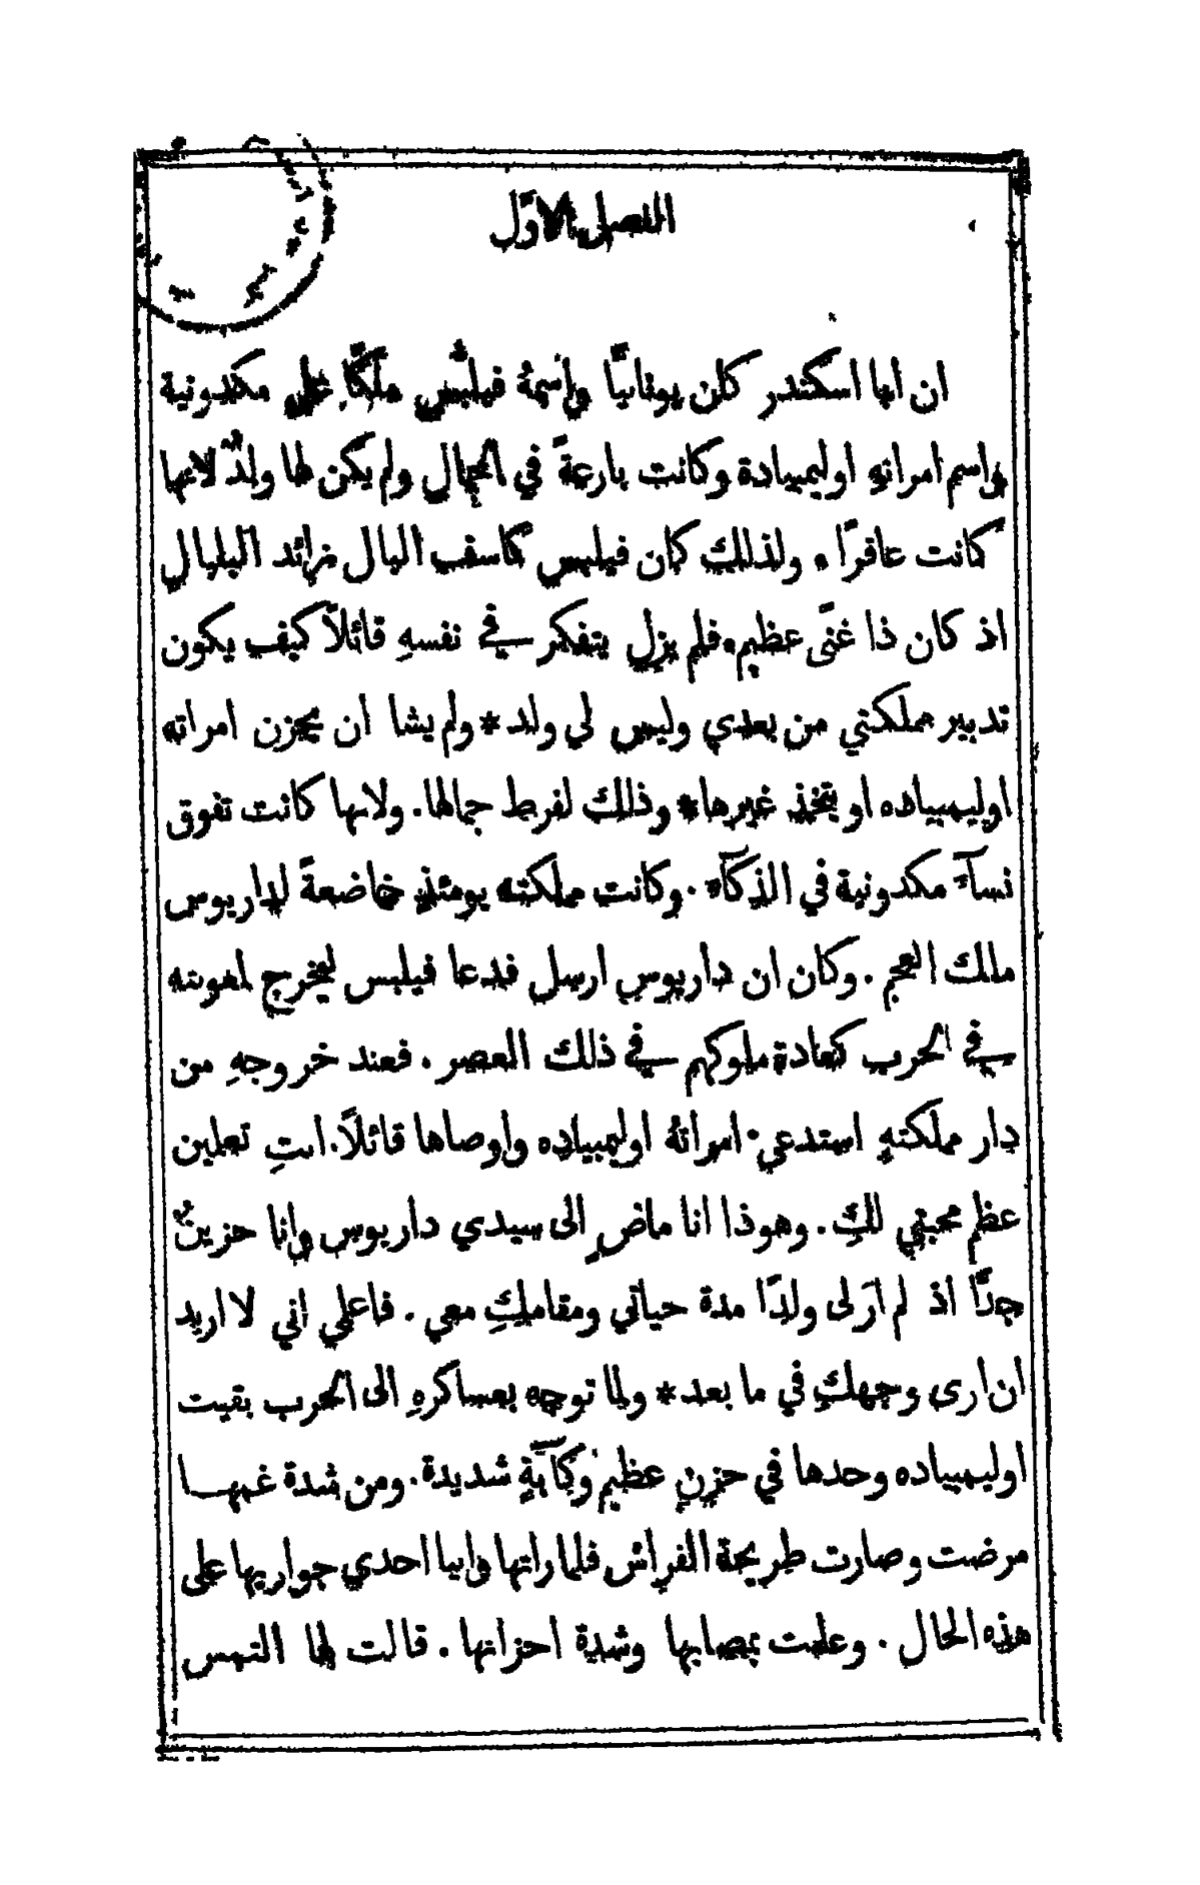 الفصل الاوّل
ان ابا اسكندر كان يونانيًّا واسمهُ فيلبُّس ملكًا على مكدونية
واسم امراتهِ اوليمبيادة وكانت بارعةً في الجمال ولم يكن لها ولدٌ لانها
كانت عاقرًا. ولذلك كان فيلبس كاسف البال زائد البلبال
اذ كان ذا غنًى عظيم. فلم يزل يتفكر في نفسهِ قائلاً كيف يكون
تدبير مملكتي من بعدي وليس لي ولد * ولم يشا ان يحزن امراته
اوليمبياده او يتخذ غيرها * وذلك لفرط جمالها. ولانها كانت تفوق
نسآء مكدونية في الذكآء. وكانت مملكته يومئذٍ خاضعةً لداريوس
ملك العجم. وكان ان داريوس ارسل فدعا فيلبس ليخرج لمعونته
في الحرب كعادة ملوكهم في ذلك العصر. فعند خروجهِ من
دار مملكتهِ استدعي امراتهُ اوليمبياده واوصاها قائلاً. انتِ تعلمين
عظم محبتي لكِ. وهوذا انا ماضٍ الى سيدي داريوس وانا حزينٌ
جدًّا اذ لم ارَ لى ولدًا مدة حياتي ومقامكِ معي. فاعلمي اني لا اريد
ان ارى وجهكِ في ما بعد * ولما توجه بعساكرهِ الى الحرب بقيت
اوليمبياده وحدها في حزنٍ عظيم وكآبةٍ شديدة. ومن شدة غمها
مرضت وصارت طريحة الفراش فلما راتها احدي جواريها على
هذه الحال. وعلمت بمصابها وشدة احزانها. قالت لها التمس